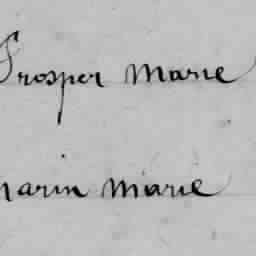 Prosper Marie
marin Marie